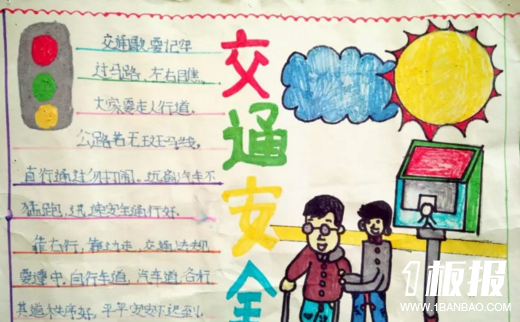 交通安全
交通歌,要记牢
过马路,左右目焦,
大家要走人行道,
公路若无斑马线,
直行通过勿打闹,坑沿汽车不
猛跑,持续安全通行好.
靠右行,靠边走,交通法规
要遵守,自行车道,汽车道,各行
其道秩序好,平平安安
1板报
WWW.1BANBAO.COM